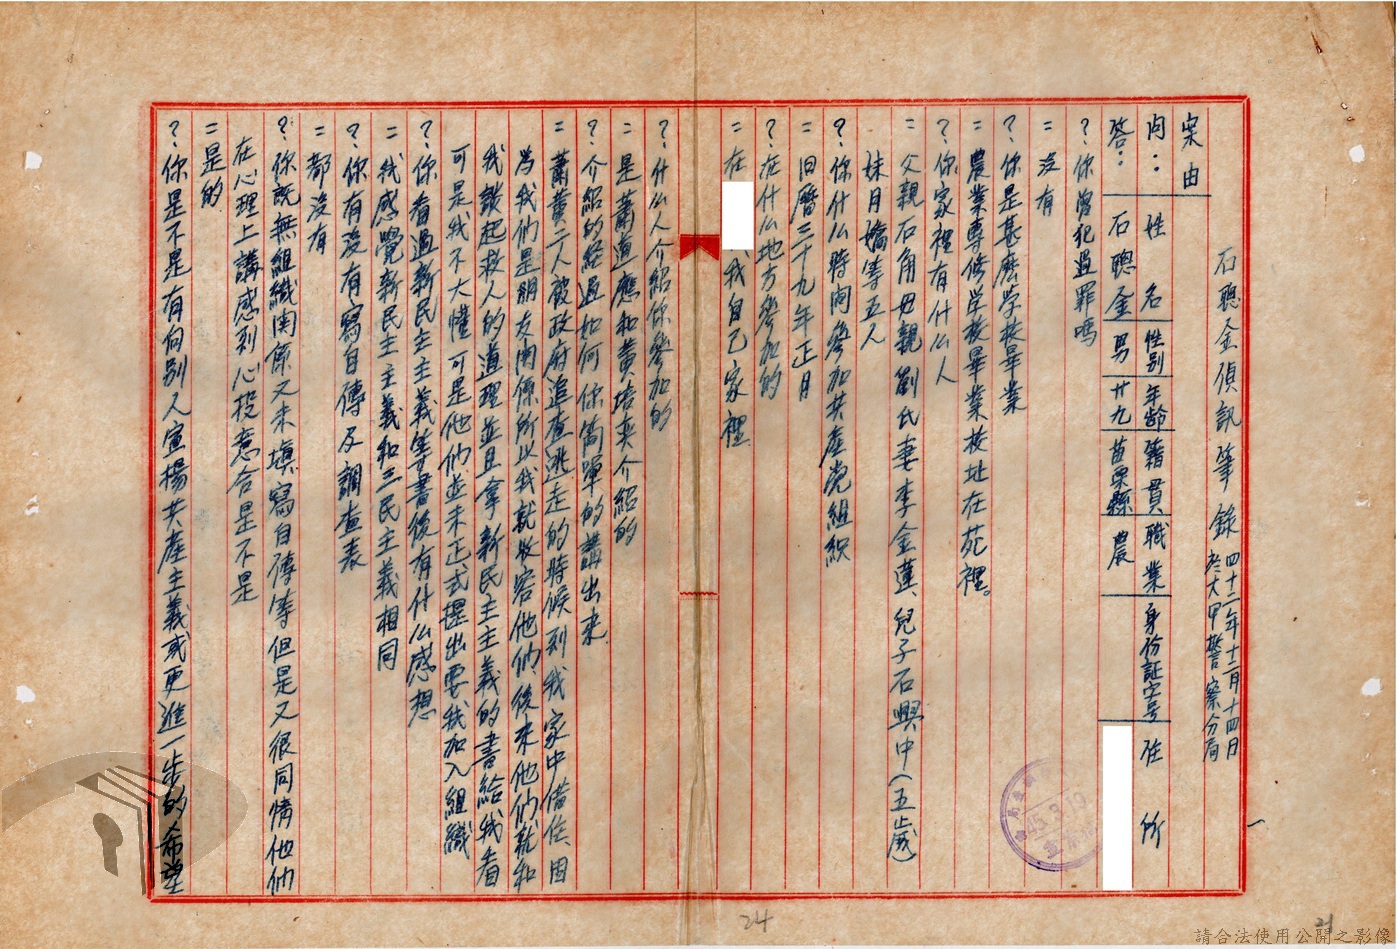 石聰金偵訊筆錄 四十二年十二月十四日
於大甲警察分局
案由
問： 姓名 性別 年齡 籍貫 職業 身份証字号 住所
答： 石聰金 男 廿九 苗栗縣 農
？你曾犯過罪嗎
＝沒有
？你是甚麽学校畢業
＝農業専修学校畢業校址在苑裡。
？你家裡有什仏人
＝父親石角母親劉氏妻李金蓮、兒子石興中（五歲）
妹月嬌等五人
？你什仏時间參加共產党組织
＝旧曆三十九年正月
？在什仏地方參加的
＝在 我自己家裡
？什仏人介紹你參加的
＝是蕭道應和黃培奕介紹的
？介紹的経過如何你简單的講出来
＝蕭黃二人被政府追查逃走的時候到我家中借住、因
為我们是朋友関係所以我就收容他们、後来他们就和
我談起救人的道理並且拿新民主主義的書給我看
可是我不大懂可是他们並未正式提出要我加入組織
？你看過新民主主義等書後有什仏感想
＝我感覺新民主主義和三民主義相同
？你有沒有寫自傳及調查表
＝都沒有
？你既無組織関係又未填寫自傳等但是又很同情他们
在心理上講感到心投意合是不是
＝是的
？你是不是有向別人宣揚共產主義或更進一步的希望
24
21
請合法使用公開之影像